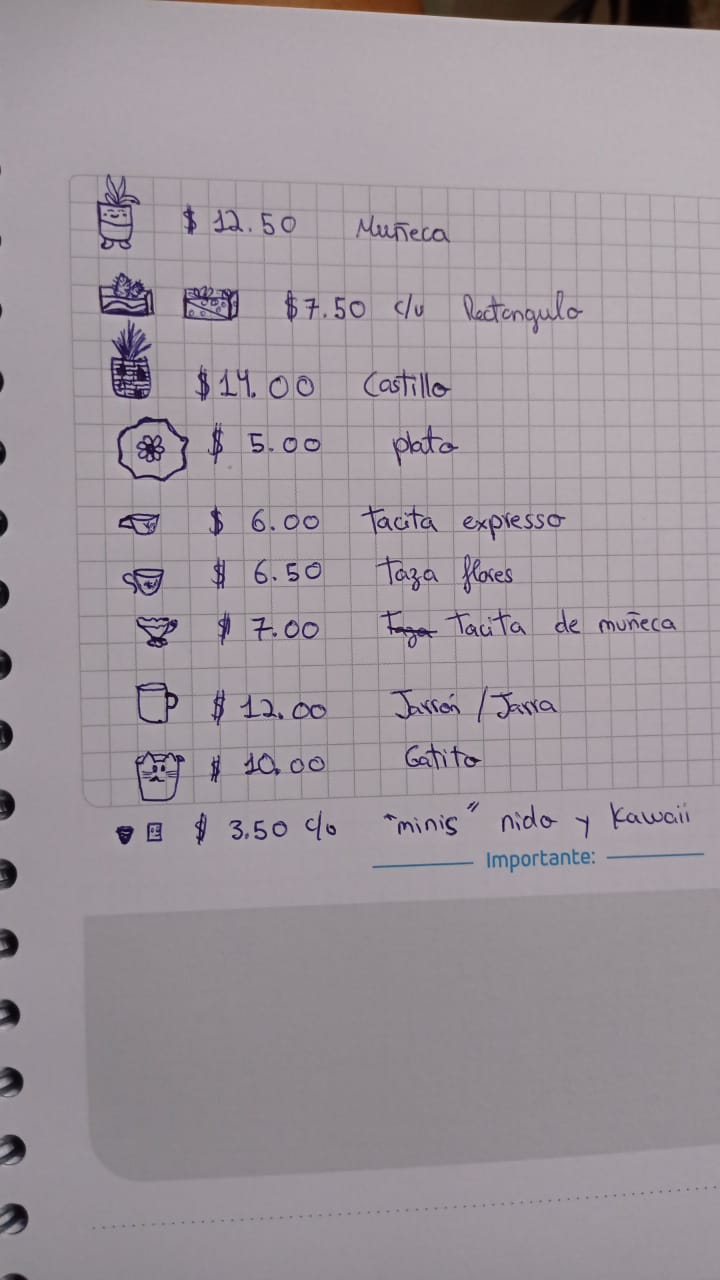 $ 12.50 Muñeca
$7.50 c/u Rectangulo
$14.00 Castillo
$ 5.00 plato
$ 6.00 Tacita expresso
$ 6.50 Taza flores
$ 7.00 Taza Tacita de muñeca
$ 12.00 Jarrón / Jarra
$ 10.00 Gatito
$ 3.50 c/u "minis" nido y Kawaii
Importante: